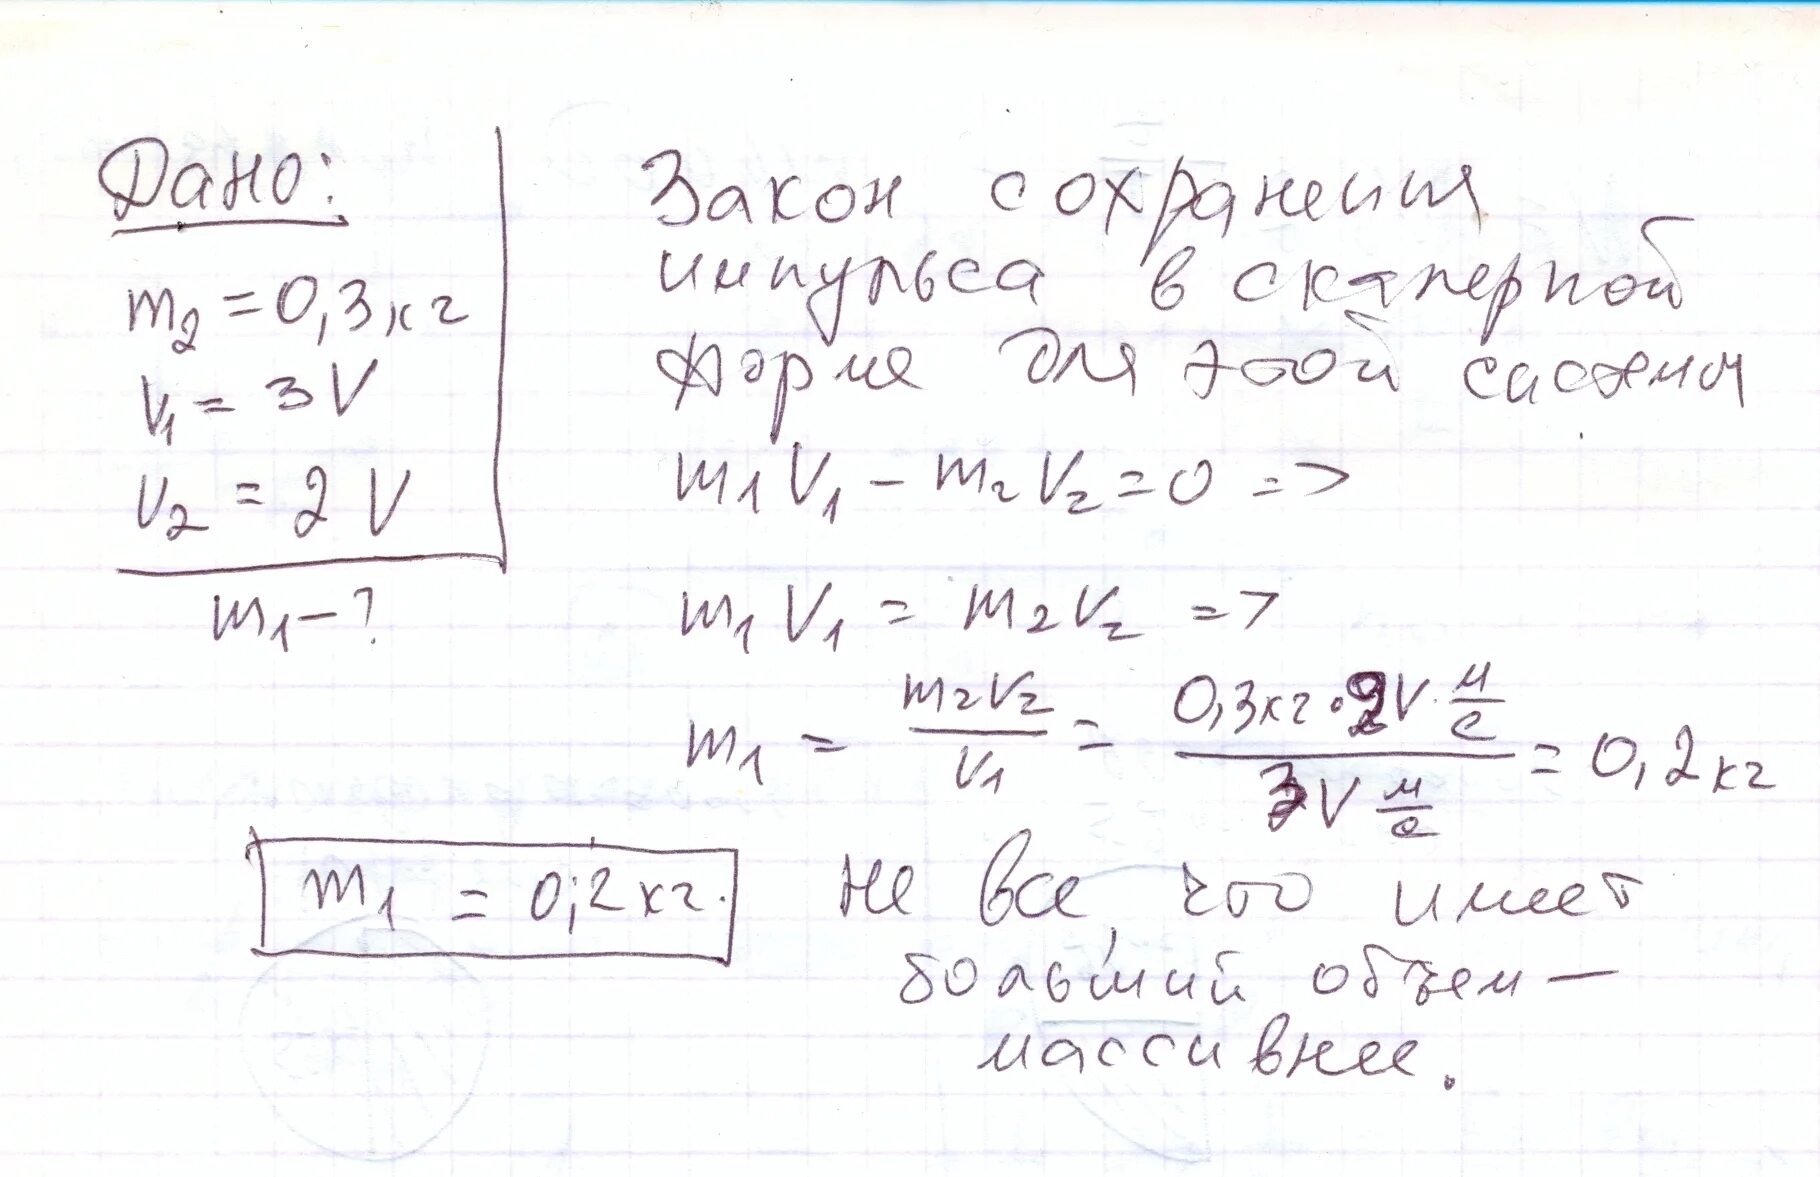 Дано:
m₂ = 0,3 кг
V₁ = 3V
V₂ = 2V
m₁ – ?
Закон сохранения
импульса в скалярной
форме для этой системы
m₁V₁ – m₂V₂ = 0 =>
m₁V₁ = m₂V₂ =>
m₁ = m₂V₂/V₁ = 0,3кг·2V·м/с / 3V м/с = 0,2кг
m₁ = 0,2кг.
Не все, что имеет
больший объем –
массивнее.